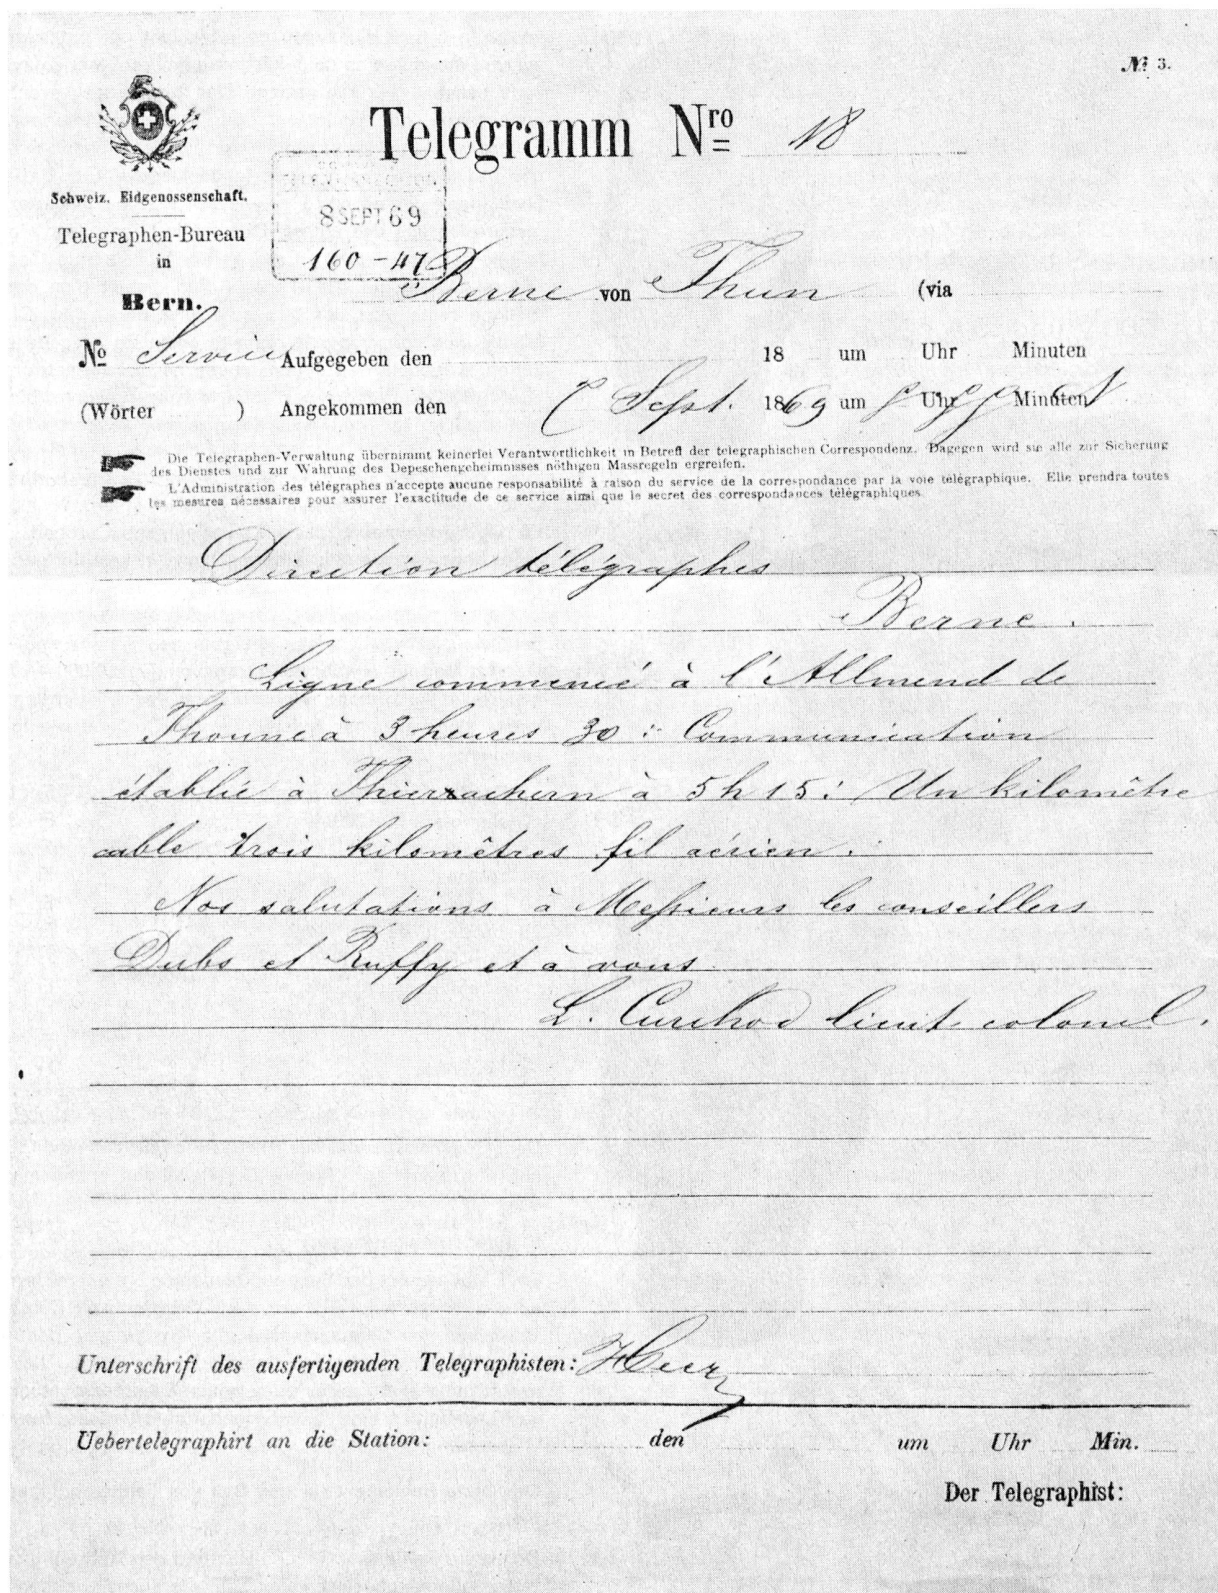 № 3.
Telegramm Nro 18
Schweiz. Eidgenossenschaft.
Telegraphen-Bureau
in
Bern.
8 SEPT 69
160-47
Berne von Thun (via
No Service Aufgegeben den 18 um Uhr Minuten
(Wörter ) Angekommen den Sept. 1869 um Uhr Minuten
Die Telegraphen-Verwaltung übernimmt keinerlei Verantwortlichkeit in Betreff der telegraphischen Correspondenz. Dagegen wird sie alle zur Sicherung
des Dienstes und zur Wahrung des Depeschengeheimnisses nöthigen Massregeln ergreifen.
L'Administration des télégraphes n'accepte aucune responsabilité à raison du service de la correspondance par la voie télégraphique. Elle prendra toutes
les mesures nécessaires pour assurer l'exactitude de ce service ainsi que le secret des correspondances télégraphiques.
Direction télégraphes
Berne.
Ligne commencé à l'Allmend de
Thoune à 3 heures 30: Communication
établie à Thierachern à 5 h 15: Un kilomètre
cable trois kilomètres fil aérien.
Nos salutations à Messieurs les conseillers
Dubs et Ruffy et à vous
L. Curchod lieut. colonel.
Unterschrift des ausfertigenden Telegraphisten:
Uebertelegraphirt an die Station: den um Uhr Min.
Der Telegraphist: